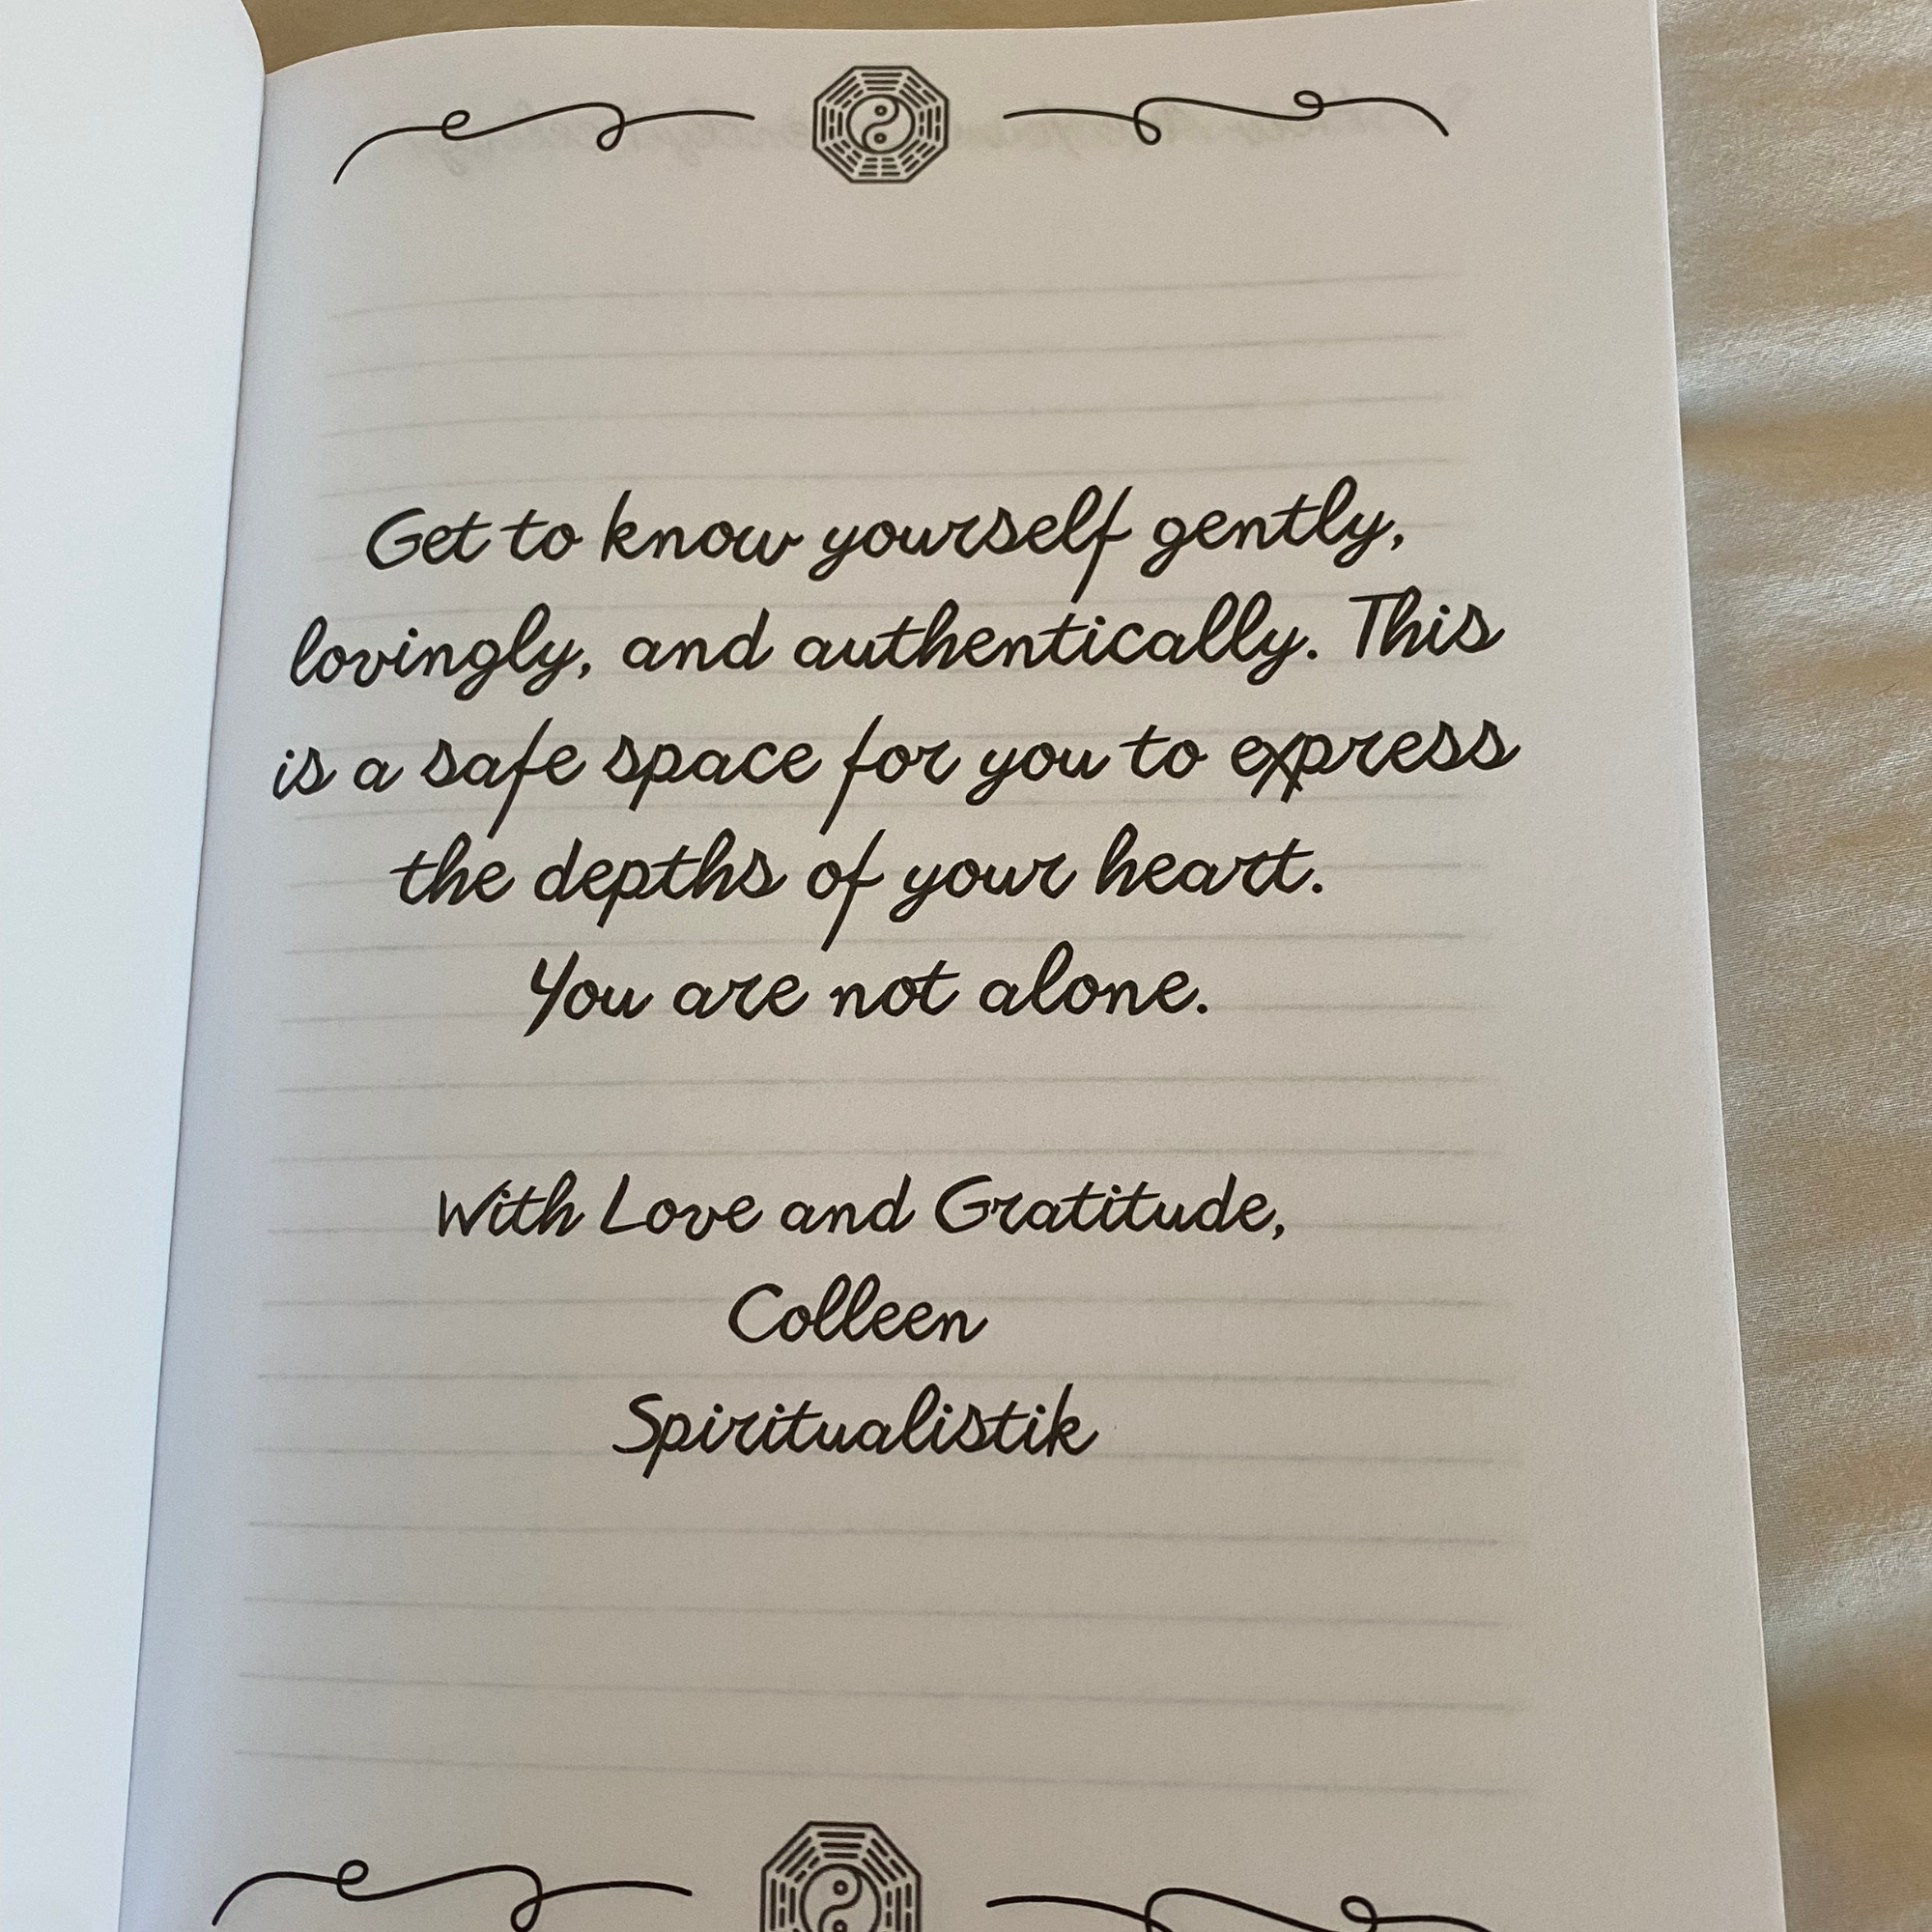 Get to know yourself gently,
lovingly, and authentically. This
is a safe space for you to express
the depths of your heart.
You are not alone.
With Love and Gratitude,
Colleen
Spiritualistik